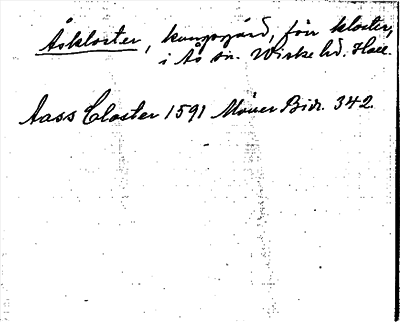 Åskloster, kungsgård, förr kloster,
i Ås sn. Wiske hd. Hall.
Aass Closter 1591 Möller Bidr. 342.